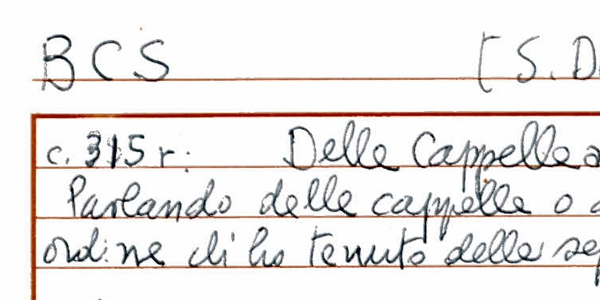 BCS [S.D.
c. 315 r: Delle Cappelle
Parlando delle cappelle o
ordine ch'ho tenuto delle se